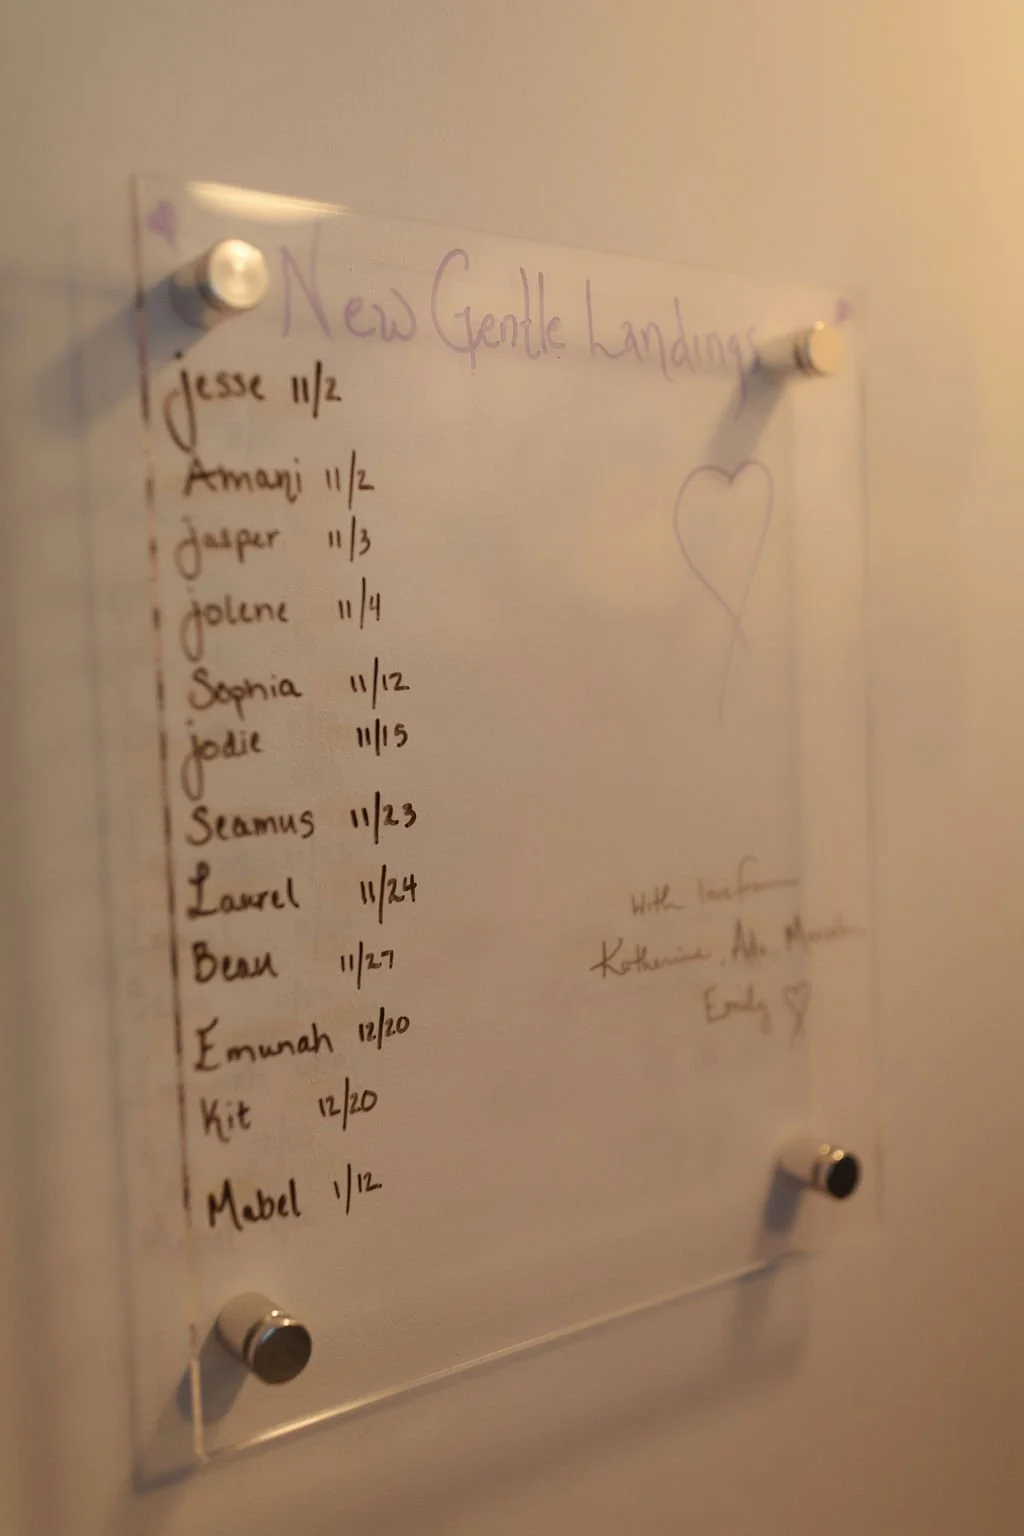 New Gentle Landings
jesse 11/2
Amani 11/2
jasper 11/3
jolene 11/4
Sophia 11/12
jodie 11/15
Seamus 11/23
Laurel 11/24
Beau 11/27
Emunah 12/20
Kit 12/20
Mabel 1/12
With love from
Katherine, Ada,
Emily